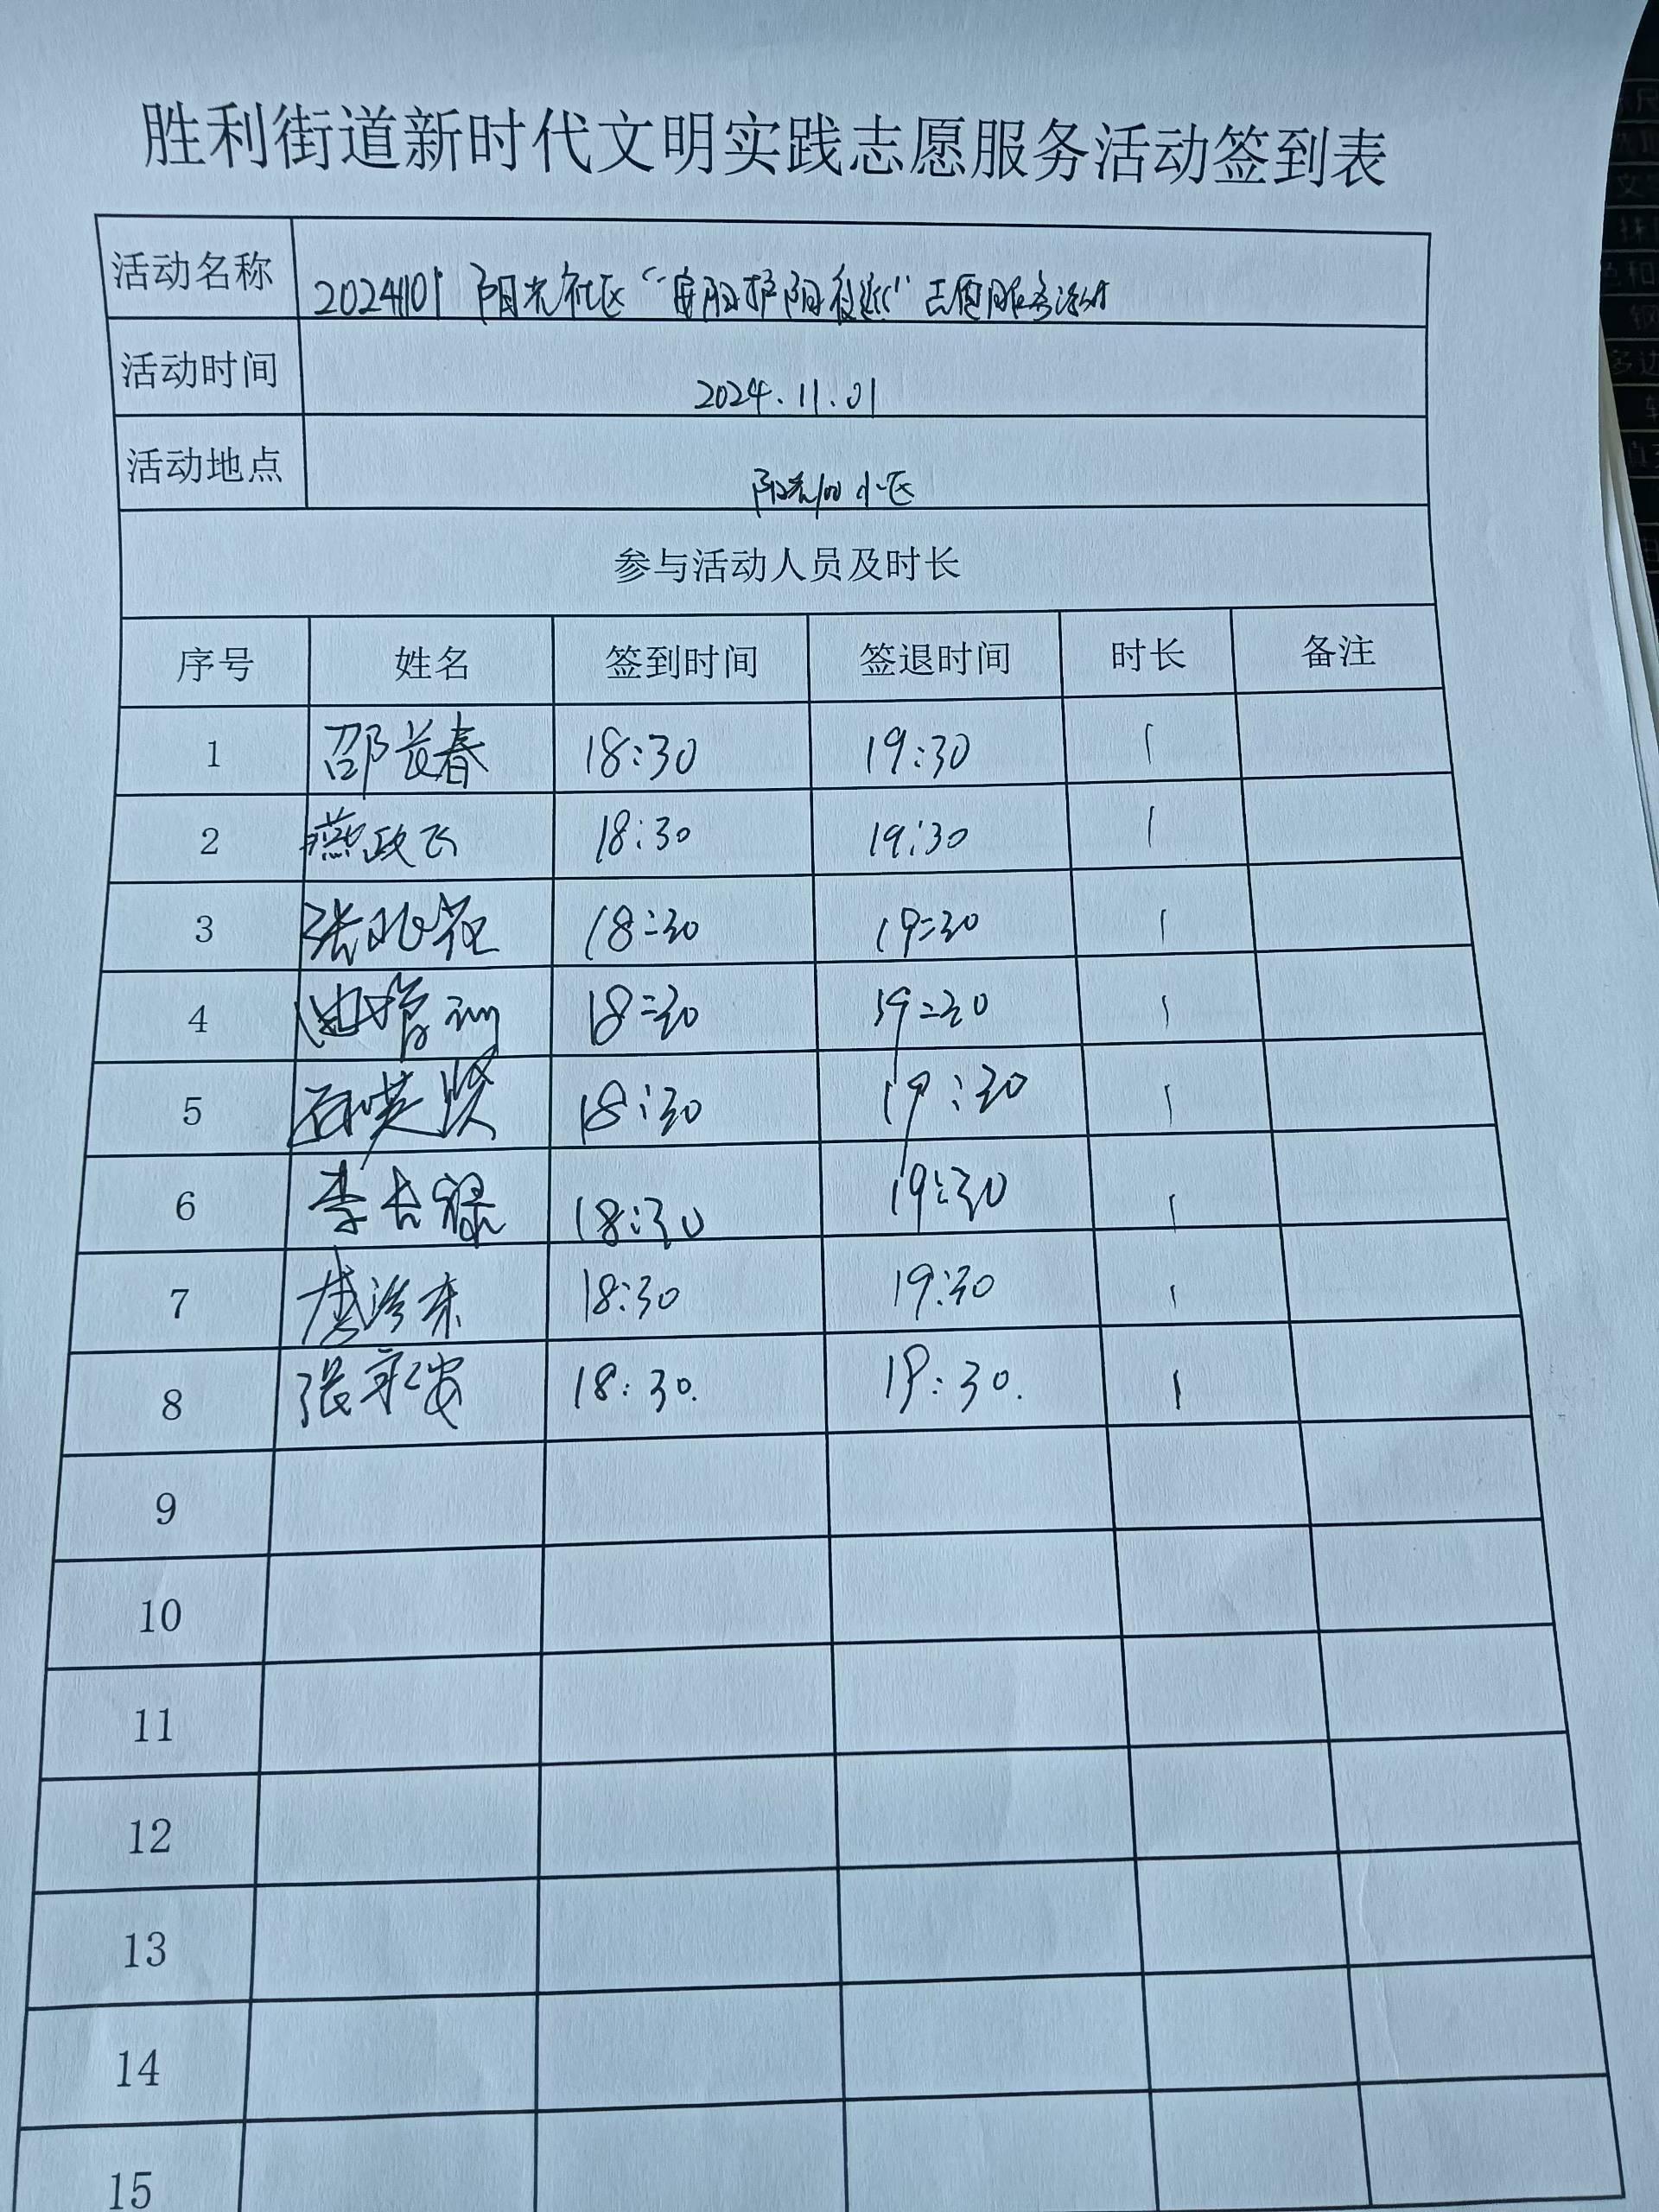 胜利街道新时代文明实践志愿服务活动签到表
活动名称 20241101 阳光社区“ ”志愿服务活动
活动时间 2024.11.01
活动地点 阳光100小区
参与活动人员及时长
序号 姓名 签到时间 签退时间 时长 备注
1 邵长春 18:30 19:30 1
2 燕政飞 18:30 19:30 1
3 张 18:30 19:30 1
4 18:30 19:30 1
5 英贤 18:30 19:30 1
6 李长禄 18:30 19:30 1
7 唐 东 18:30 19:30 1
8 张 安 18:30. 19:30. 1
9
10
11
12
13
14
15